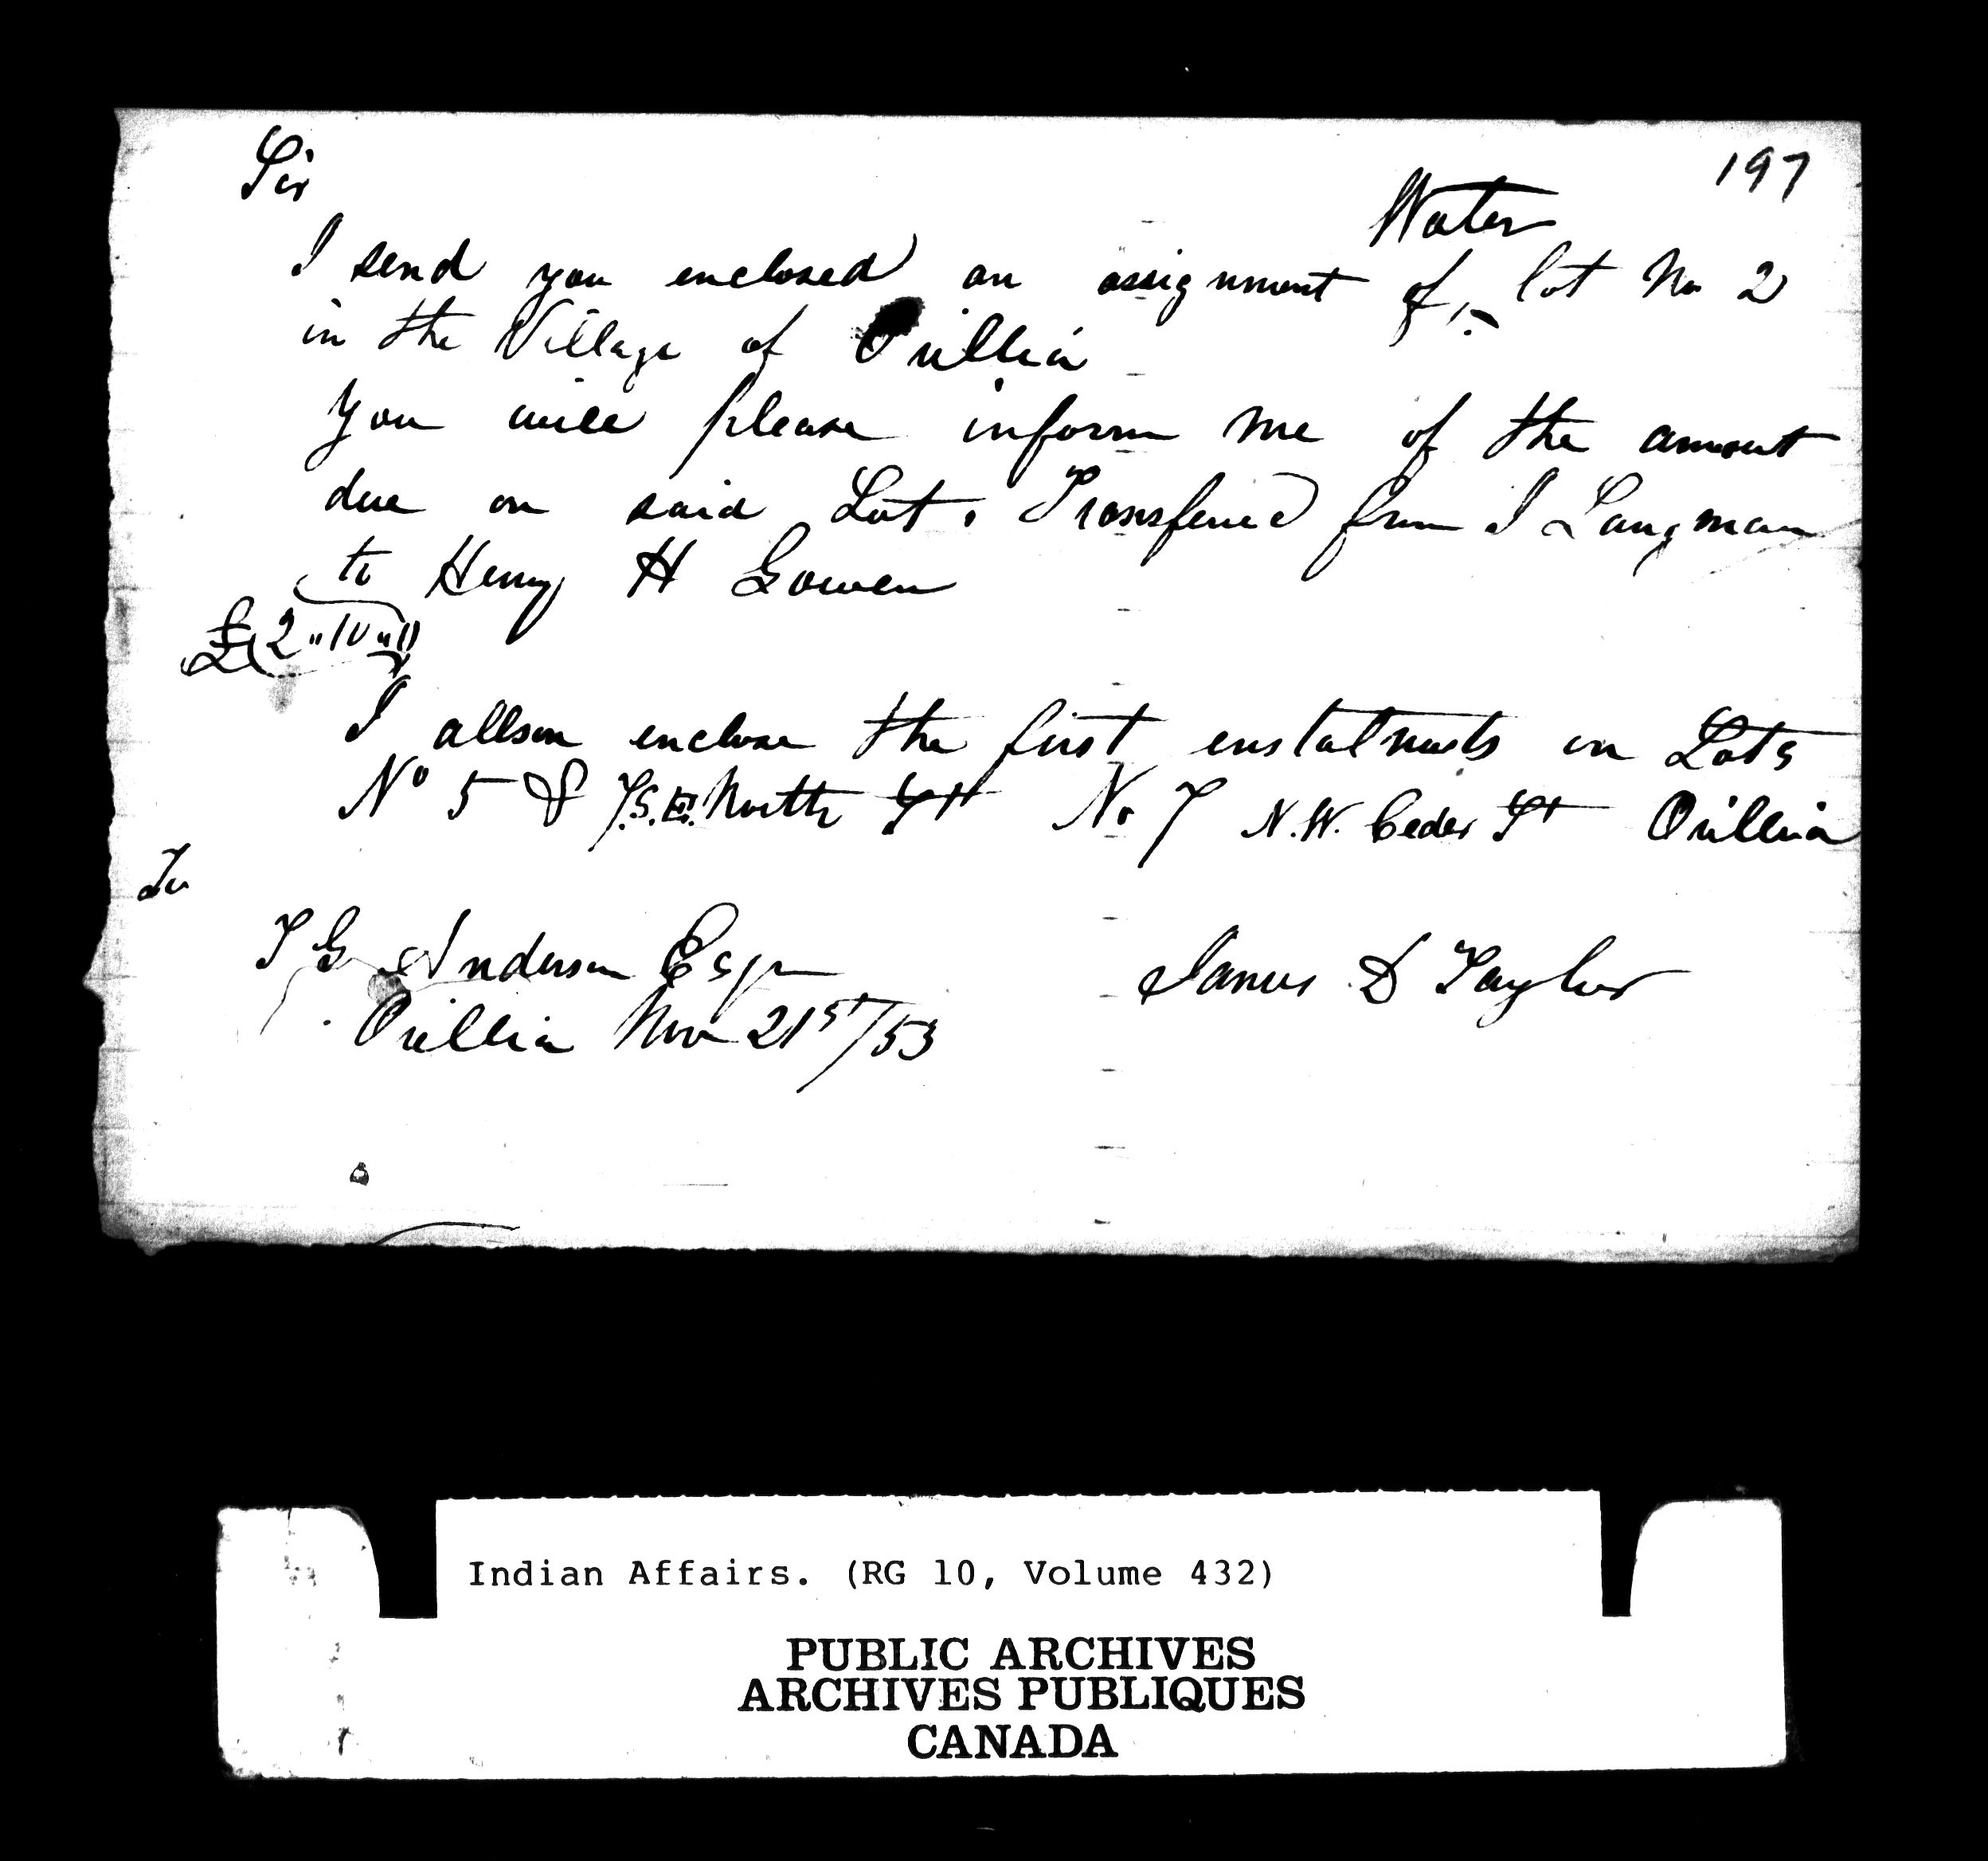 197
Sir
I send you enclosed an assignment of Water lot No 2
in the Village of Orillia
you will please inform me of the amount
due on said Lot. Transferred from I Langman
to Henry H Gowen
£2"10"0
I allson enclose the first enstalments on Lots
No 5 & 7. S.E. North St No 7 N.W. Ceder St Orillia
To
T G Anderson Esqr
Orillia Nov 21st/53
James D Taylor
Indian Affairs. (RG 10, Volume 432)
PUBLIC ARCHIVES
ARCHIVES PUBLIQUES
CANADA